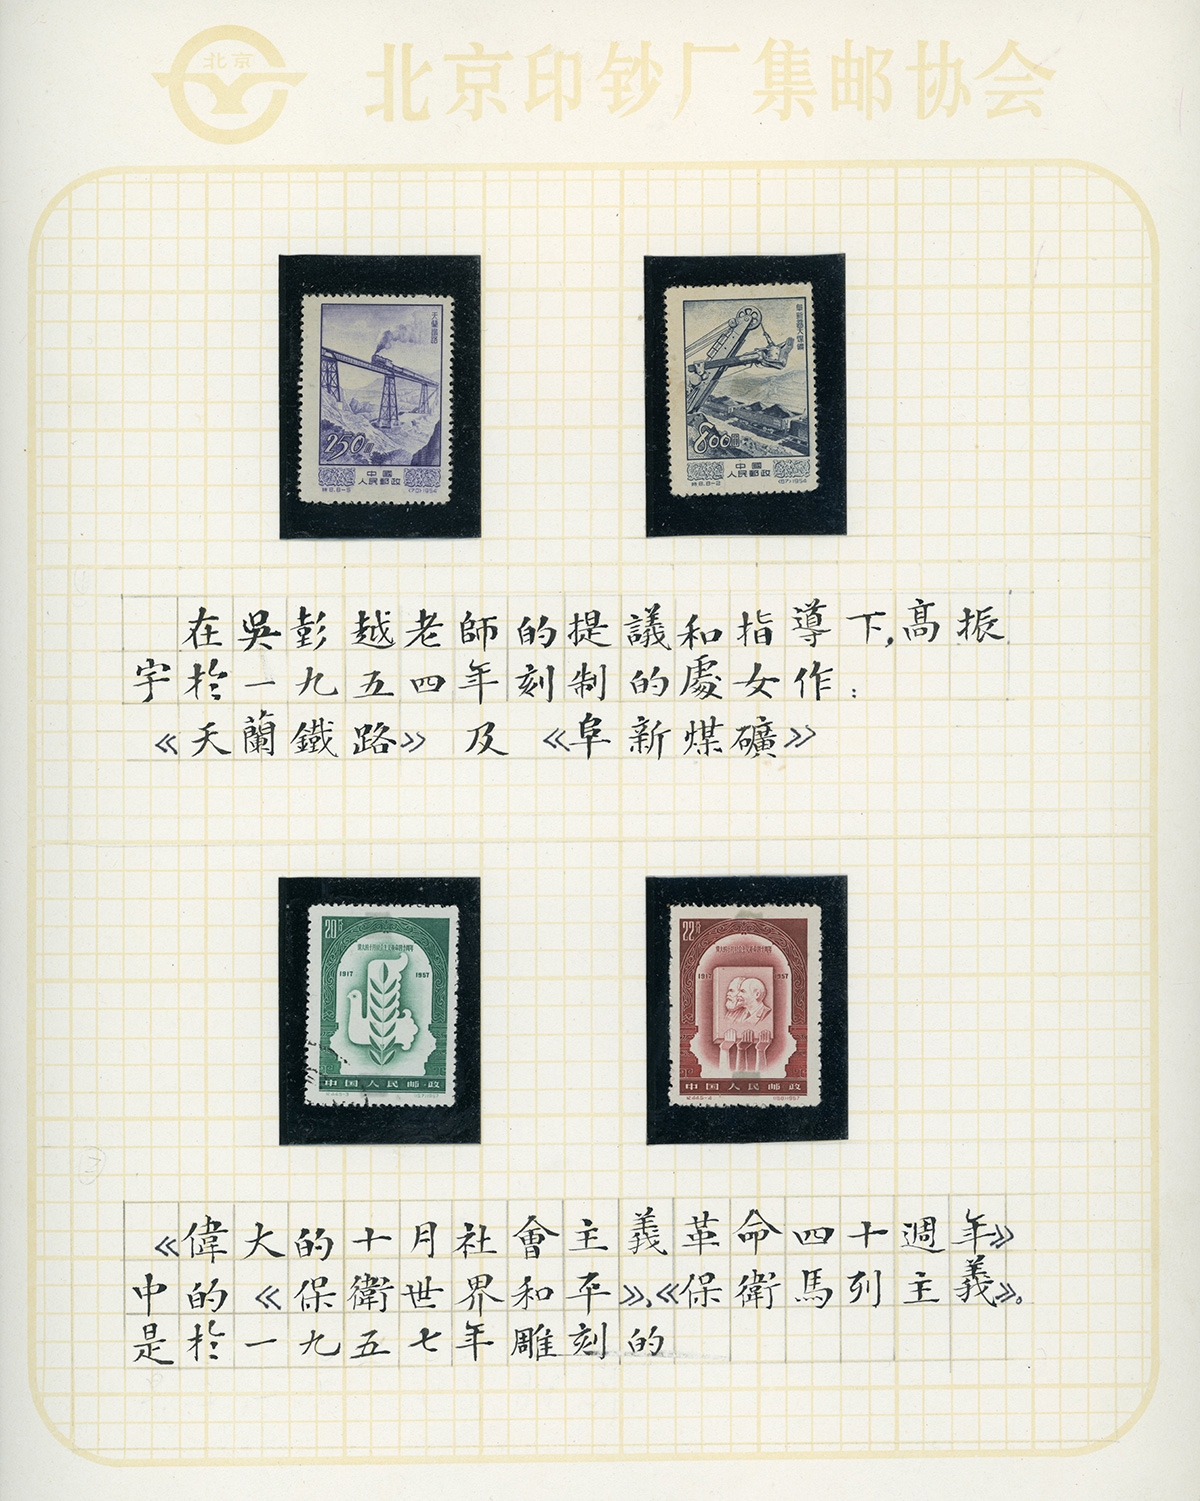 北京
北京印钞厂集邮协会
天蘭鐵路
250圓
中國
人民郵政
1954
800圓
中國
人民郵政
1954
在吳彭越老師的提議和指導下,高振
宇於一九五四年刻制的處女作:
《天蘭鐵路》及《阜新煤礦》
20分
1917 1957
中国人民邮政
22分
1917 1957
中国人民邮政
《偉大的十月社會主義革命四十週年》
中的《保衛世界和平》、《保衛馬列主義》。
是於一九五七年雕刻的